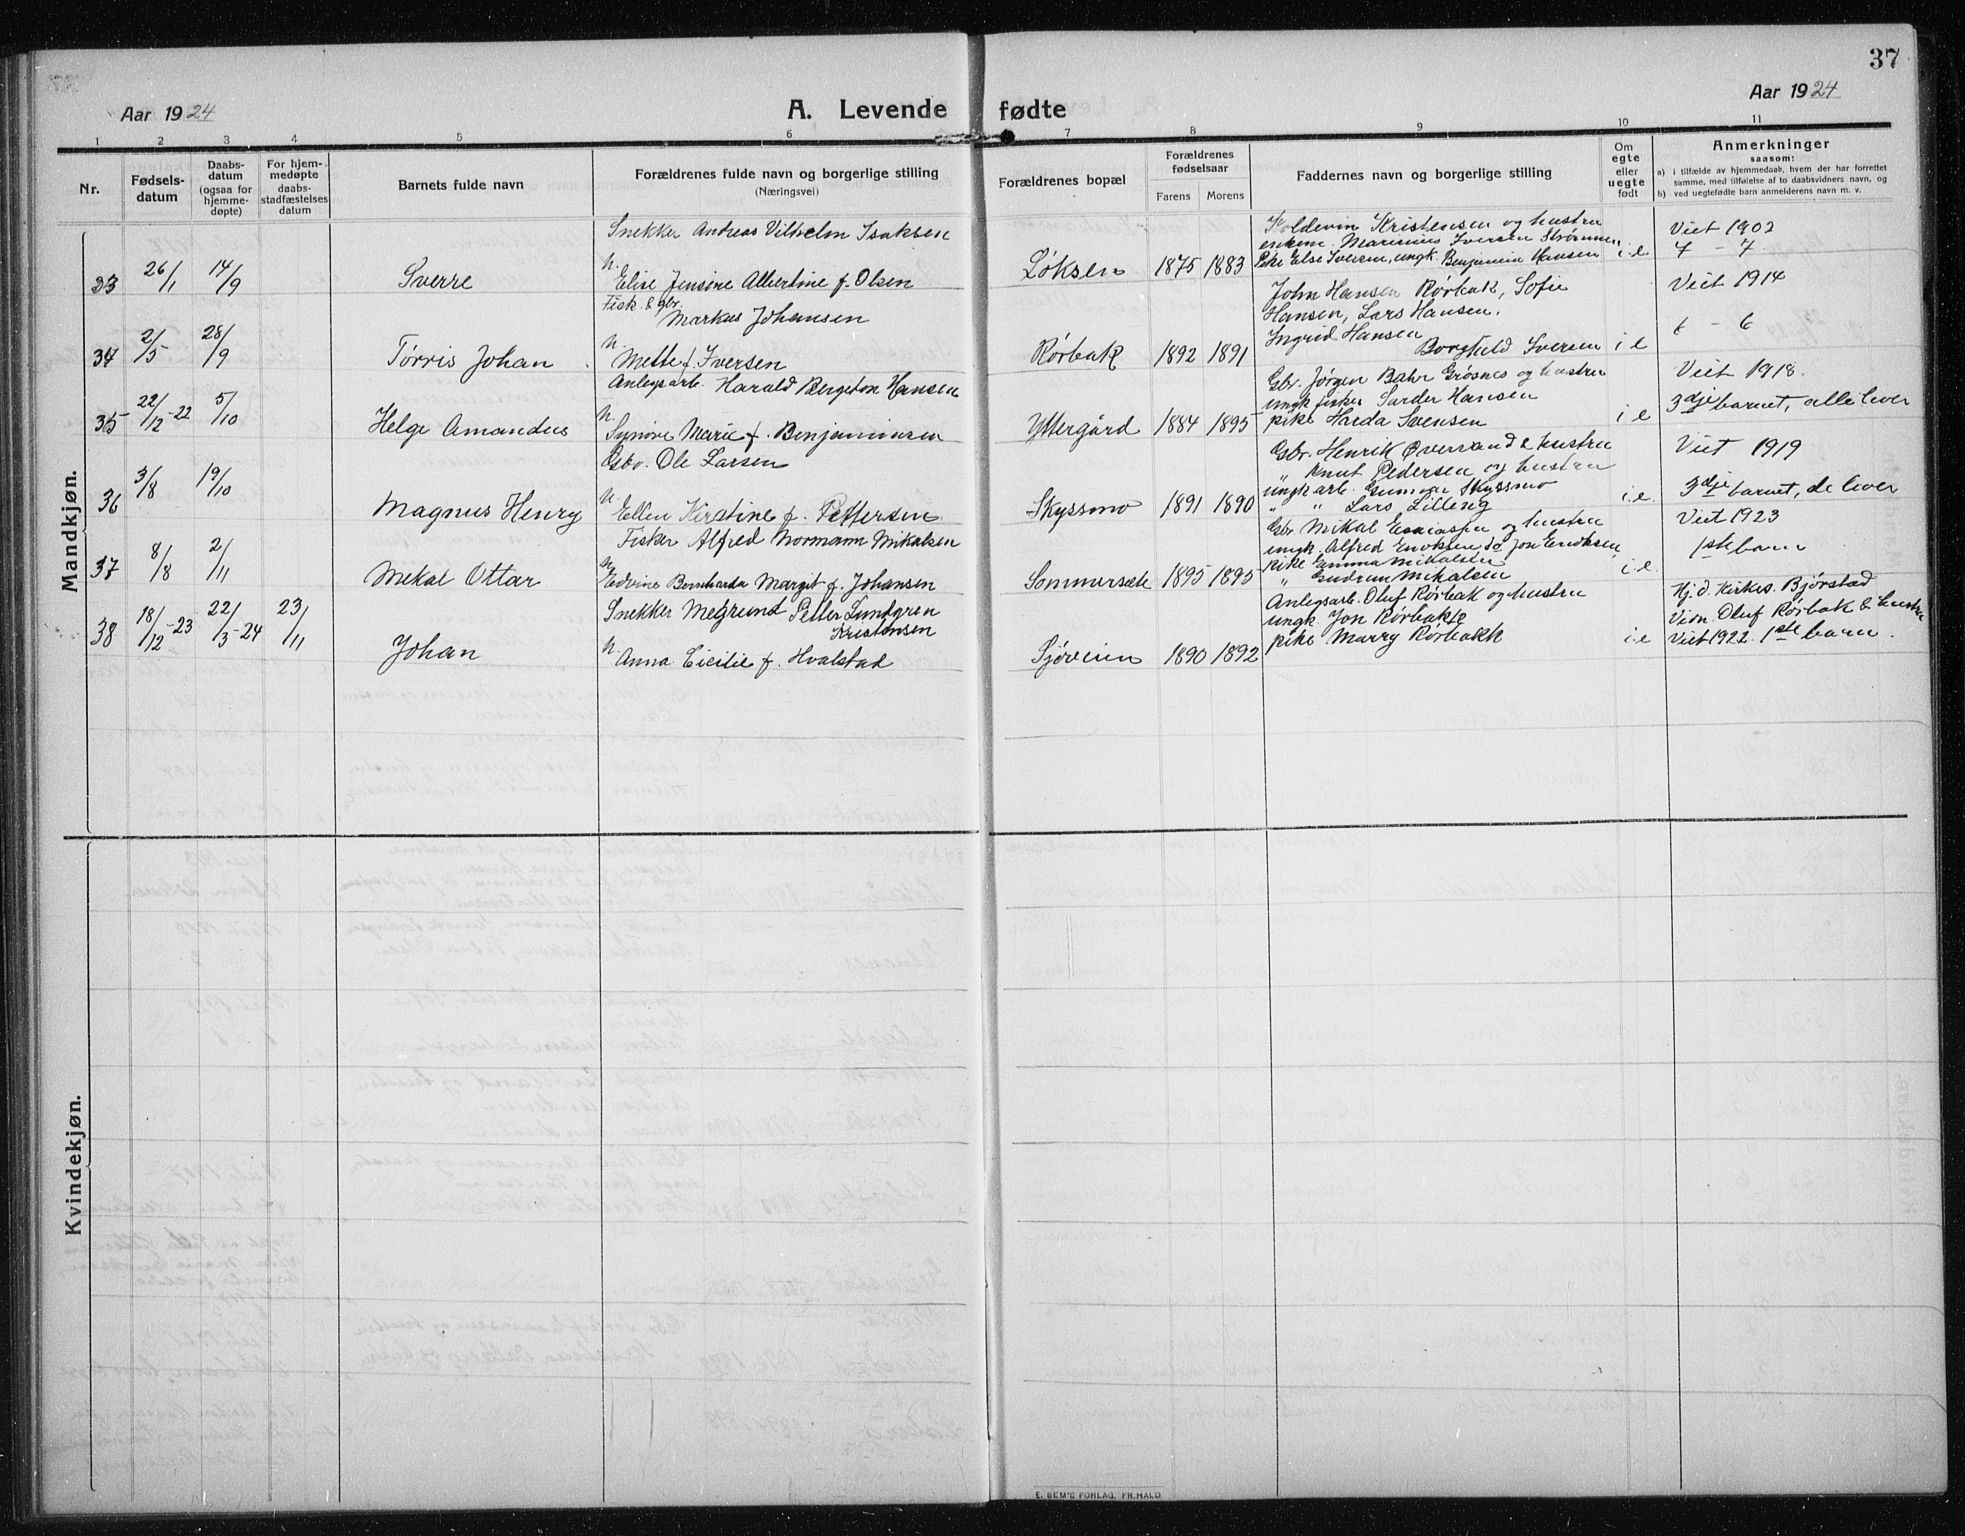 37
Aar 1924
A. Levende fødte
Aar 1924
1 2 3 4 5 6 7 8 9 10 11
Nr.
Fødsels-
datum
Daabs-
datum
(ogsaa for
hjemme-
døpte)
For hjem-
medøpte
daabs-
stadfæstelses
datum
Barnets fulde navn
Forældrenes fulde navn og borgerlige stilling
(Næringsvei)
Forældrenes bopæl
Forældrenes
fødselsaar
Farens Morens
Faddernes navn og borgerlige stilling
Om
egte
eller
uegte
født
Anmerkninger
saasom:
a) i tilfælde av hjemmedaab, hvem der har forrettet
samme, med tilføielse af to daabsvidners navn, og
b) ved uegtefødte barn anmelderens navn m. v.
Mandkjøn.
Snekker Andreas Vilhelm Isaksen
33 26/1 14/9 Sverre
h. Elise Jensine Albertine f. Olsen
Løksen 1875 1883
Koldevin Kristensen og hustru
enkem. Marinius Iversen Strømmen
Pike Else Iversen, ungk. Benjamin Hansen
i e
Viet 1902
7 - 7
Fisk. & gbr.
Markus Johansen
34 2/5 28/9 Tørris Johan
h. Mette f. Iversen
Rørbak 1892 1891
John Hansen Rørbak, Sofie
Hansen, Lars Hansen,
Ingrid Hansen
Borghild Iversen
i e
Viet 1914
6 - 6
Anlegsarb. Harald Bergeton Hansen
35 22/12-22 5/10 Helge Amandus
h. Synøve Marie f. Benjaminsen
Yttergård 1884 1895
Gbr. Jørgen Bahr Grøsnes og hustru
ungk fisker Sarder Hansen
pike Harda Svensen
i e
Viet 1918.
3dje barnet, alle lever
Gbr. Ole Larsen
36 3/8 19/10 Magnus Henry
h. Ellen Kirstine f. Pettersen
Skyssmo 1891 1890
Gbr. Henrik Øverrand & hustru
" Knut Pedersen og hustru
ungk arb. Gunnar Skyssmo
" " Lars Lilleng
i.e.
Viet 1919
3dje barnet, de lever
Fisker Alfred Normann Mikalsen
37 8/8 2/11 Mikal Ottar
h. Edvine Bernharda Margit f. Johansen
Sommersæte 1895 1895
Gbr. Mikal Esaiassen og hustru
ungk. Alfred Enoksen do Jon Enoksen
pike Emma Mikalsen
" Gudrun Mikalsen
i.e.
Viet 1923
1ste barn
Snekker Megrund Petter Lundgren
Kristensen
38 18/12-23 22/3-24 23/11 Johan
h. Anna Cicilie f. Hvalstad
Sjøveien 1890 1892
Anlegsarb. Oluf Rørbak og hustru
ungk. Jon Rørbakk
pike Marry Rørbakk
i e
Hj. d. Kirkes. Bjørstad
Vidn. Oluf Rørbak & hustru
Viet 1922. 1ste barn.
Kvindekjøn.
E. SEM'S FORLAG, FR.HALD